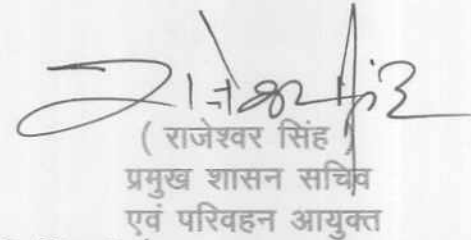 ( राजेश्वर सिंह )
प्रमुख शासन सचिव
एवं परिवहन आयुक्त